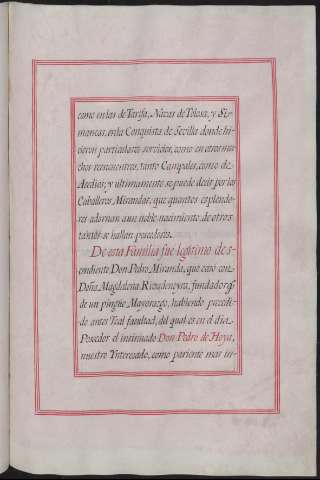 como en las de Tarifa, Navas de Tolosa, y Si-
mancas, en la Conquista de Sevilla donde hi-
cieron particulares servicios, como en otros mu-
chos reencuentros, tanto Campales, como de
Asedios; y ultimamente se puede decir por los
Caballeros Mirandas, que quantos esplendo-
res adornan a un noble nacimiento de otros
tantos se hallan poseedores.
De esta Familia fue legitimo des-
cendiente Don Pedro Miranda, que caso con
Doña Magdalena Rivadeneyra, fundadora
de un pingüe Mayorazgo, habiendo precedi-
do antes Real facultad, del qual es en el dia
Poseedor el intimado Don Pedro de Hoya,
nuestro Ynteresado, como pariente mas in-